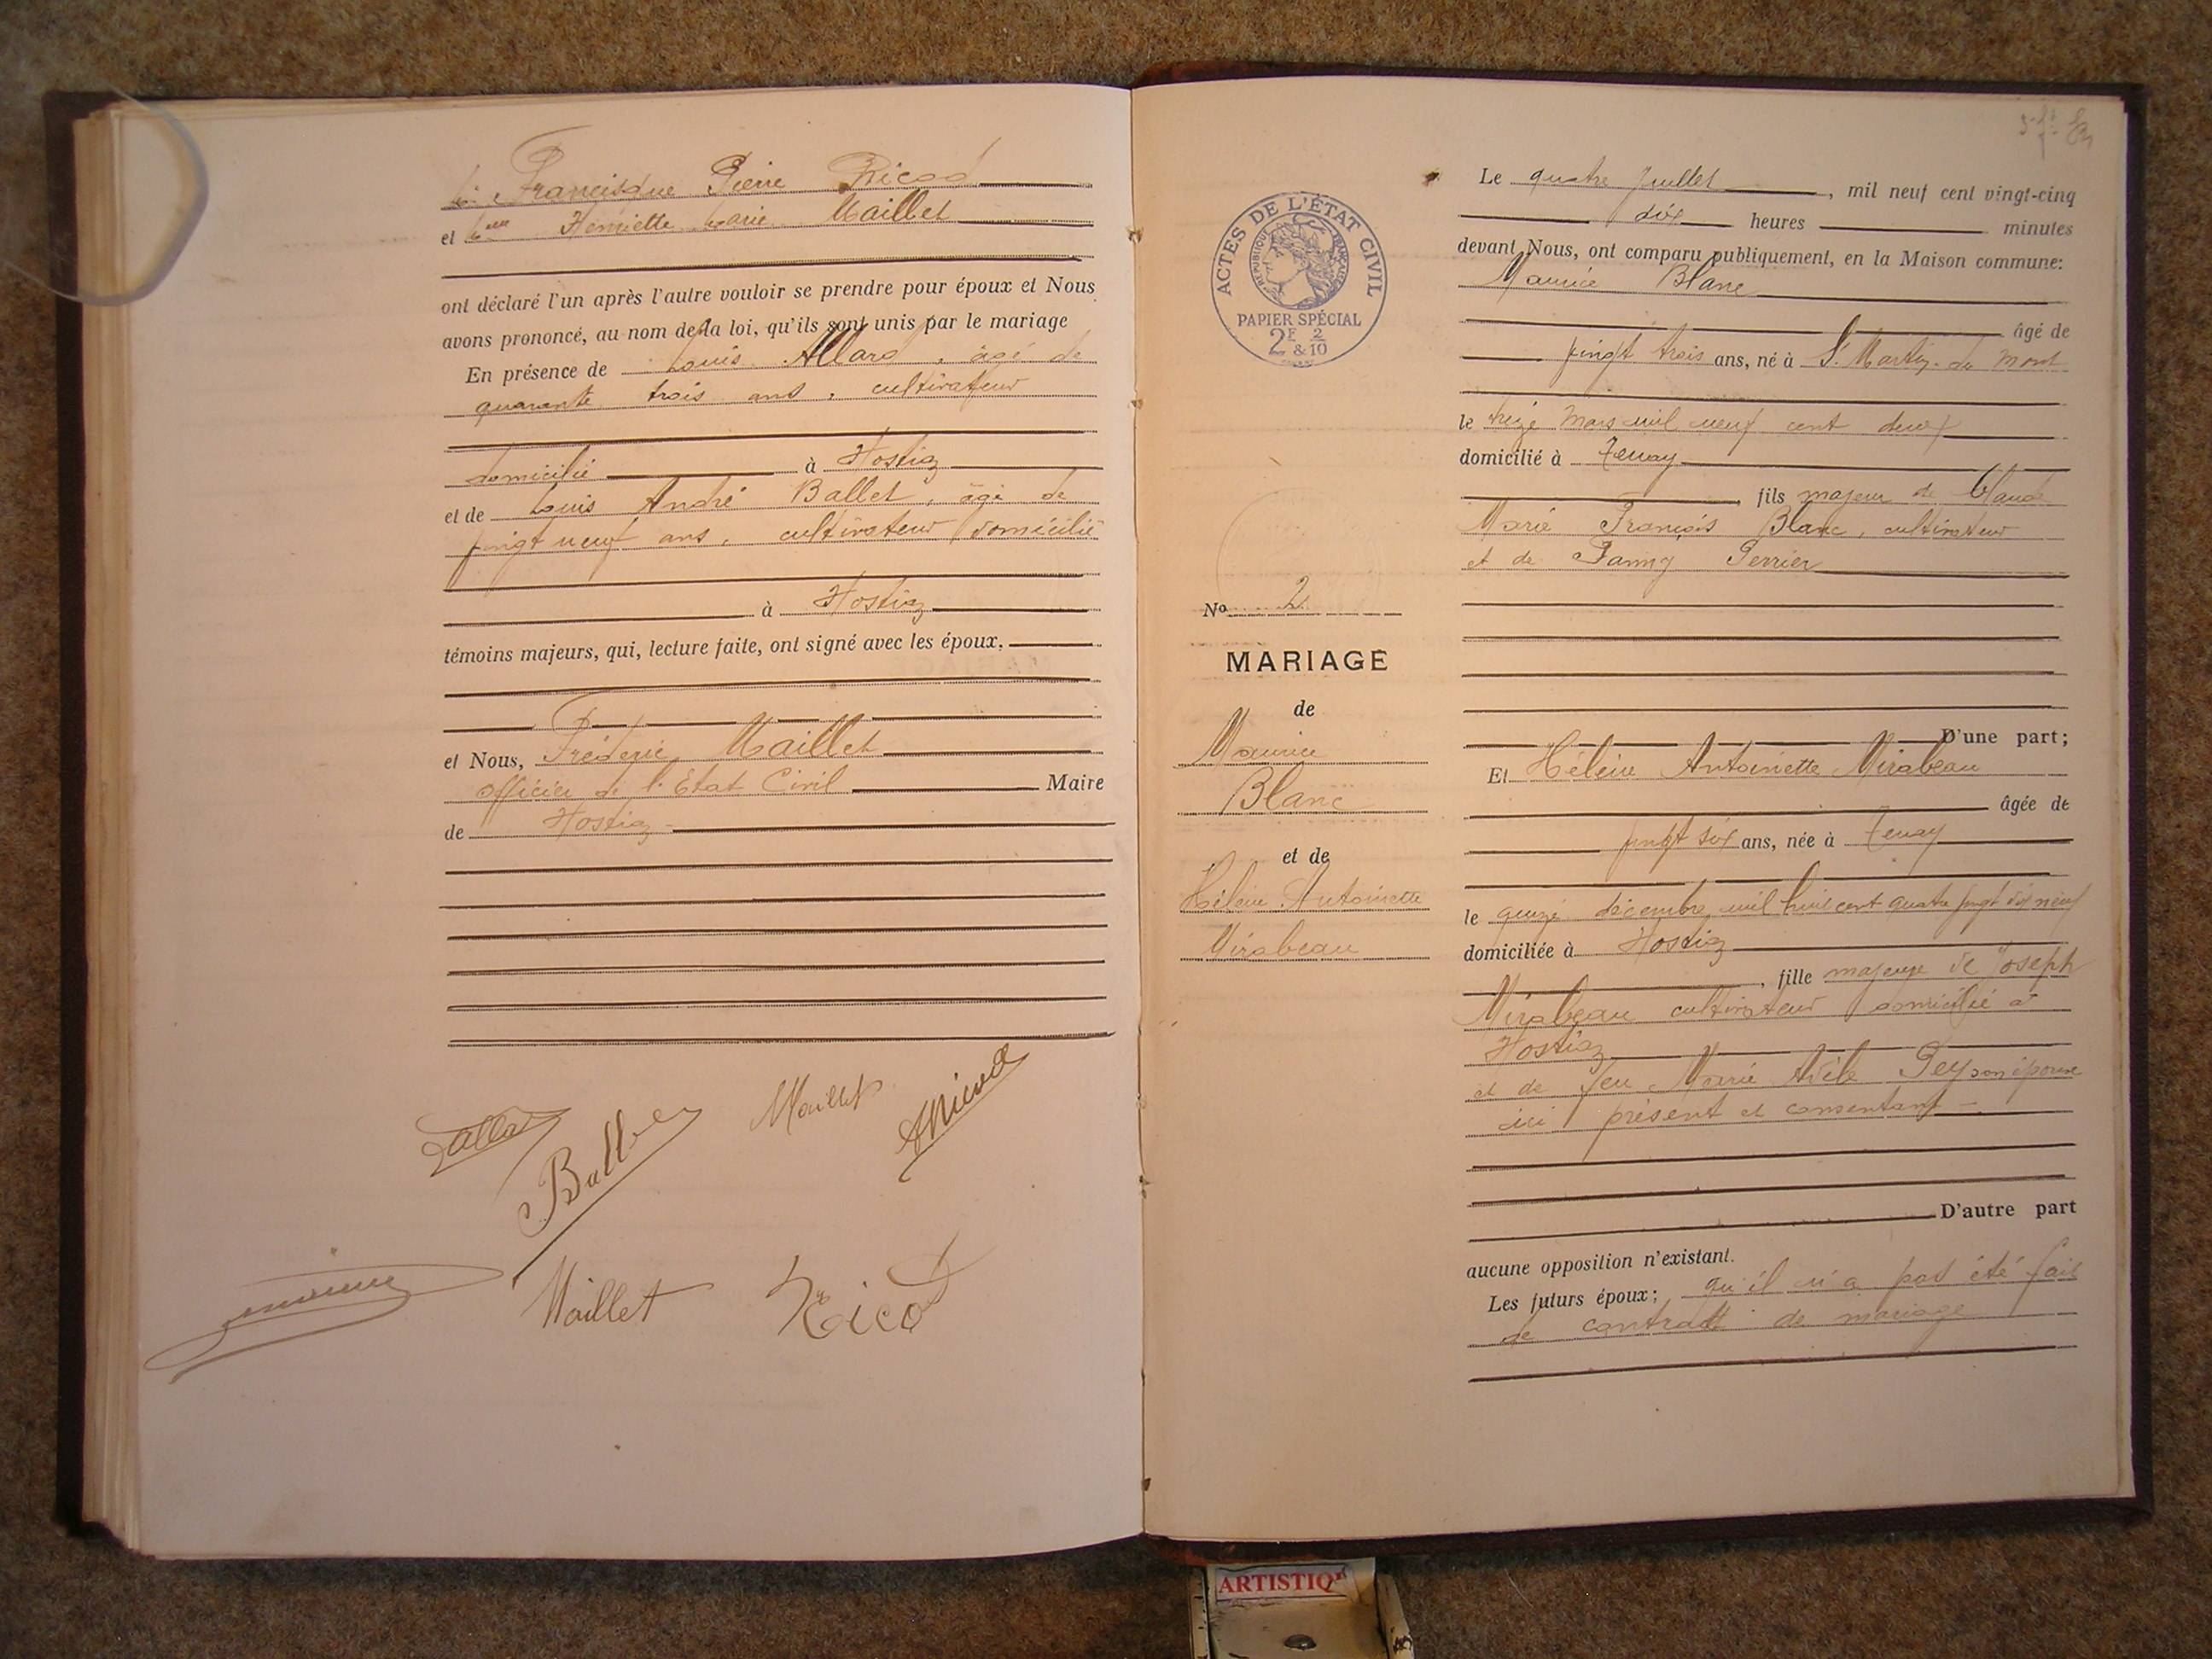 Francisque Pierre Nicod
et Henriette Marie Maillet
ont déclaré l'un après l'autre vouloir se prendre pour époux et Nous
avons prononcé, au nom de la loi, qu'ils sont unis par le mariage
En présence de Louis Allard, âgé de
quarante trois ans, cultivateur
domicilié à Hostiaz
et de Louis André Ballet, âgé de
vingt neuf ans, cultivateur domicilié
à Hostiaz
témoins majeurs, qui, lecture faite, ont signé avec les époux.
et Nous, Fréderic Maillet
officier de l'Etat Civil Maire
de Hostiaz
Maillet
Ballet
Maillet
Nicod
ACTES DE L'ÉTAT CIVIL
RÉPUBLIQUE FRANÇAISE
PAPIER SPÉCIAL
2F 2
&10
No 2
MARIAGE
de
Maurice
Blanc
et de
Hélène Antoinette
Mirabeau
Le quatre Juillet, mil neuf cent vingt-cinq
dix heures minutes
devant Nous, ont comparu publiquement, en la Maison commune:
Maurice Blanc
âgé de
vingt trois ans, né à St Martin du Mont
le treize Mars mil neuf cent deux
domicilié à Tenay
, fils majeur de Claude
Marie François Blanc, cultivateur
et de Fanny Perrier
D'une part;
Et Hélène Antoinette Mirabeau
âgée de
vingt six ans, née à Tenay
le quinze décembre mil huit cent quatre vingt dix neuf
domiciliée à Hostiaz
, fille majeure de Joseph
Mirabeau cultivateur domicilié à
Hostiaz
et de feu Marie Adèle Pey son épouse
ici présent et consentant
D'autre part
aucune opposition n'existant.
Les futurs époux; qu'il n'a pas été fait
de contrat de mariage
ARTISTIQ